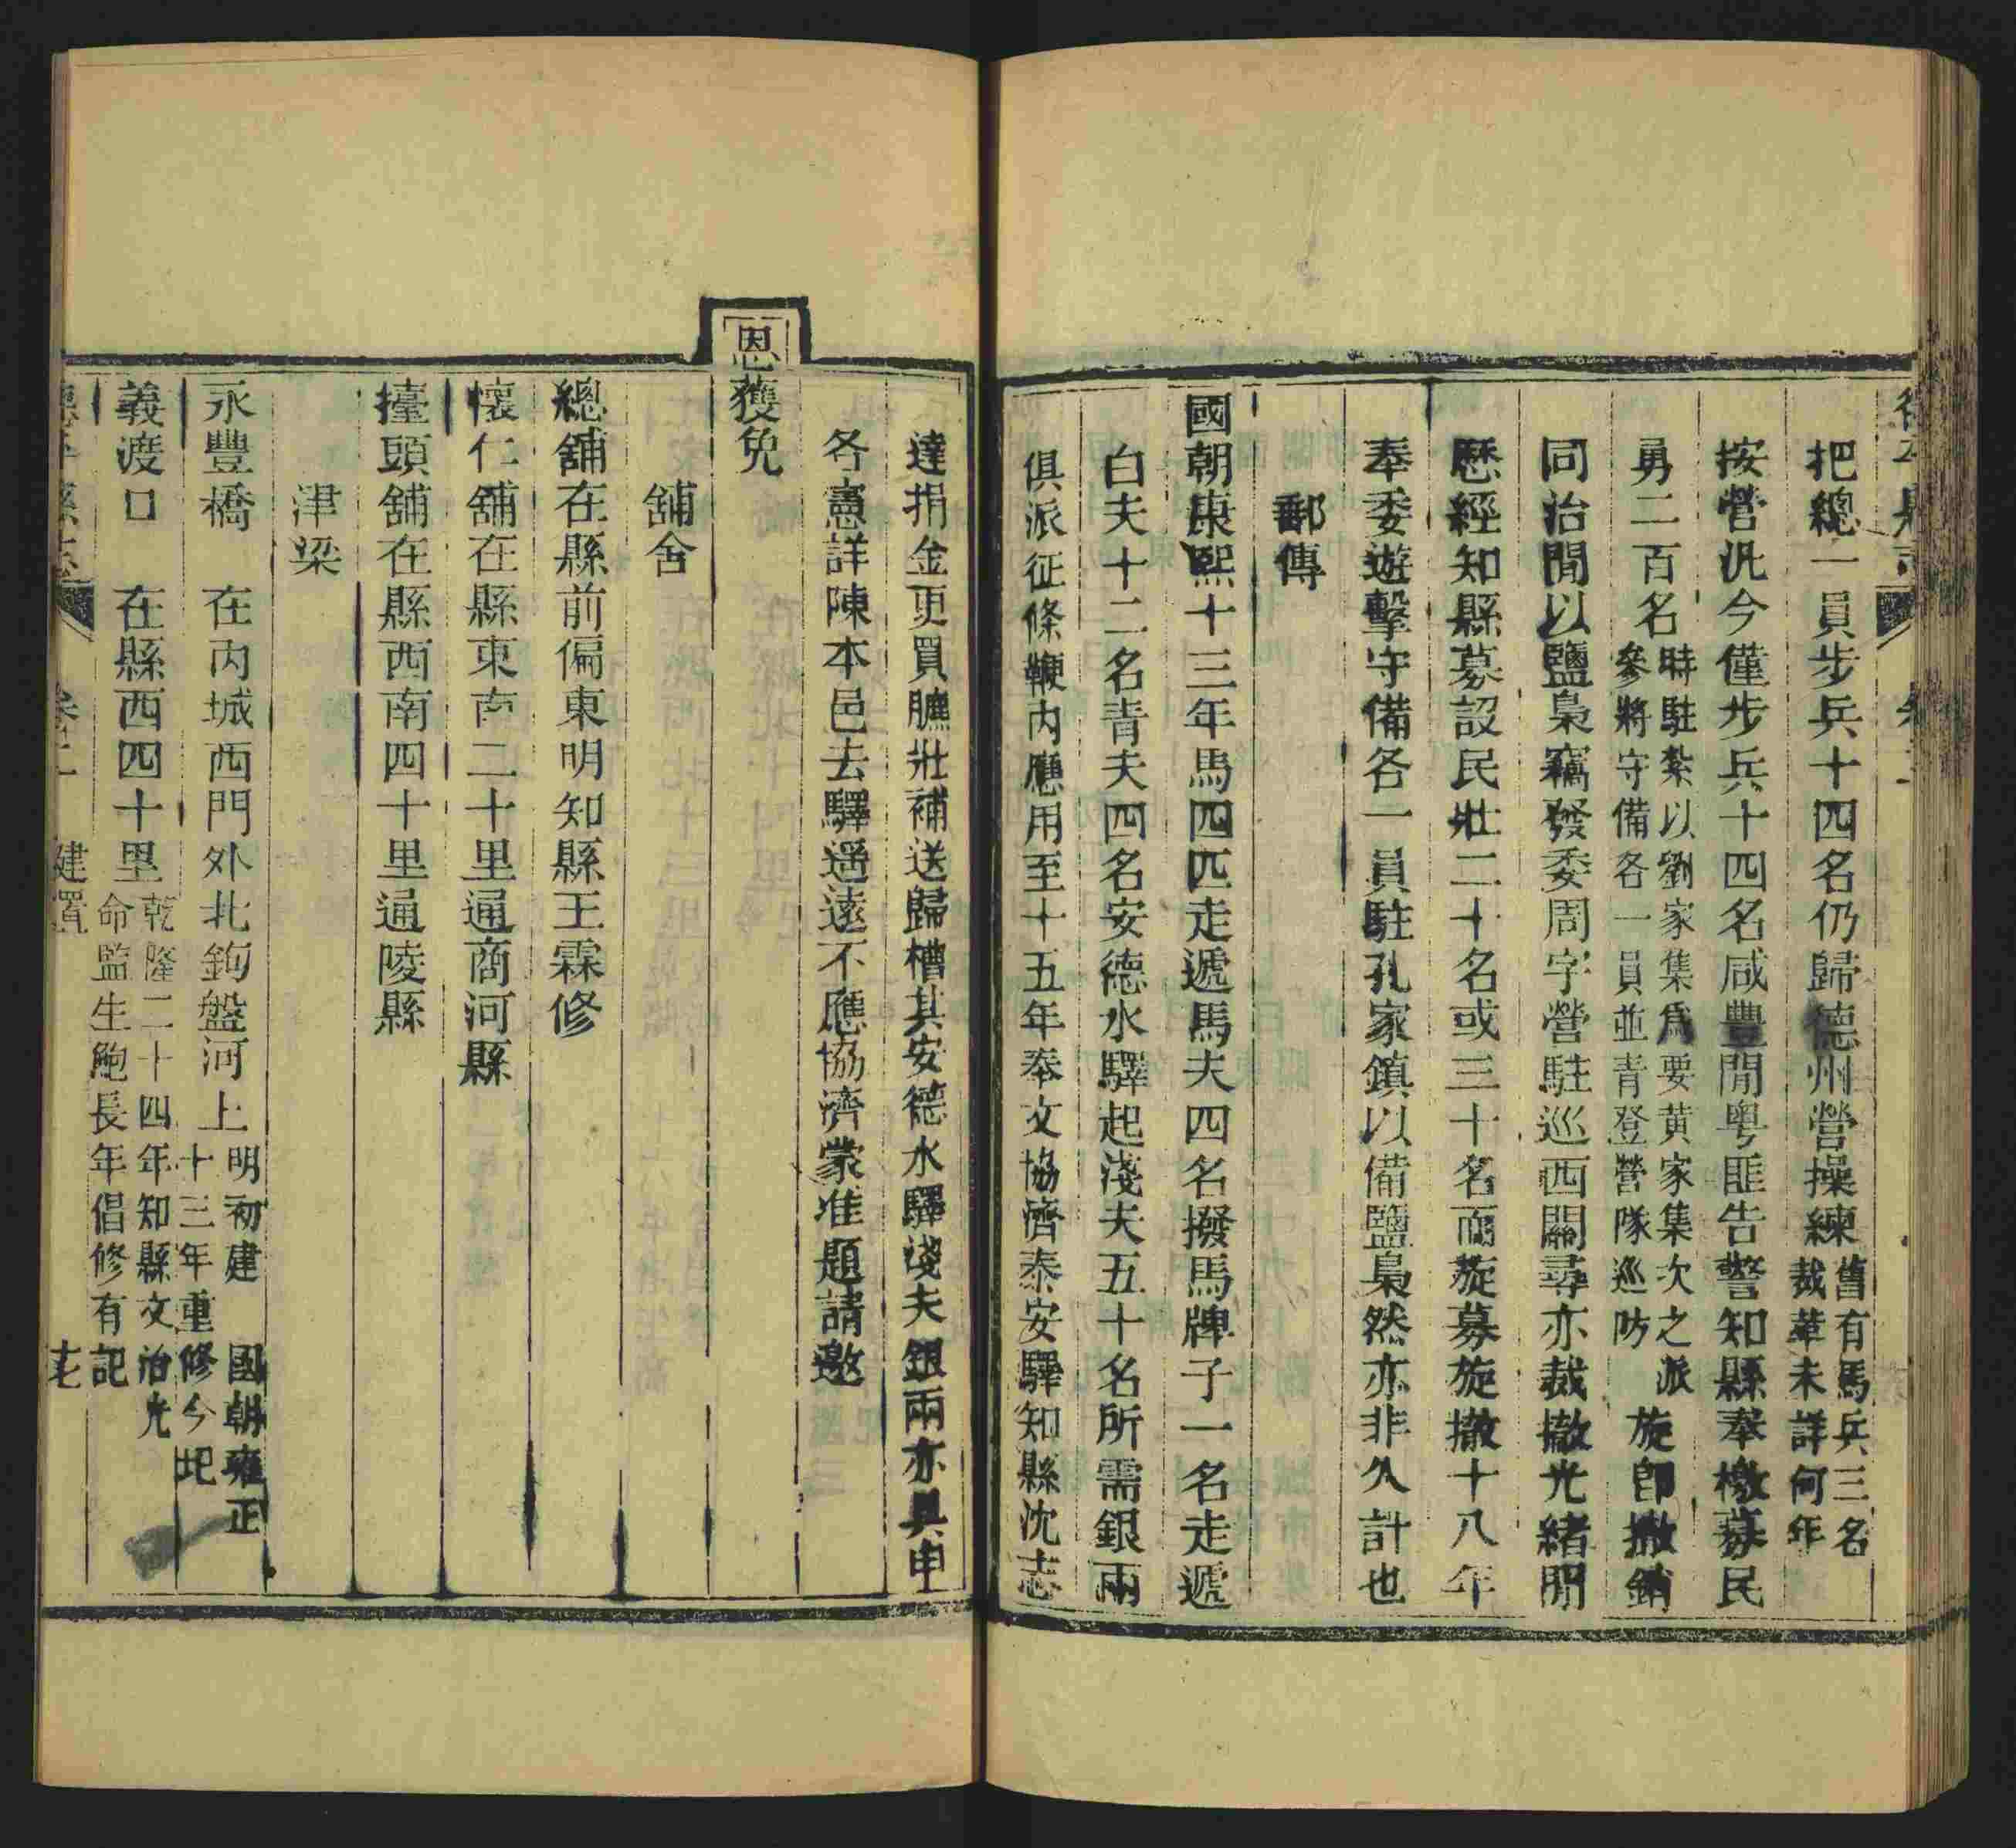 德平縣志
把總一員步兵十四名仍歸德州營操練舊有馬兵三名裁革未詳何年
按營汎今僅步兵十四名咸豐閒粵匪告警知縣奉檄募民
勇二百名時駐紮以劉家集爲要黃家集次之派參將守備各一員並青登營隊巡防旋卽撤銷
同治閒以鹽梟竊發委周字營駐巡西關尋亦裁撤光緒閒
歷經知縣募設民壯二十名或三十名而旋募旋撤十八年
奉委遊擊守備各一員駐孔家鎮以備鹽梟然亦非久計也
郵傳
國朝康熙十三年馬四匹走遞馬夫四名撥馬牌子一名走遞
白夫十二名青夫四名安德水驛起淺夫五十名所需銀兩
俱派征條鞭內應用至十五年奉文協濟泰安驛知縣沈志
達捐金更買臕壯補送歸槽其安德水驛淺夫銀兩亦具申
各憲詳陳本邑去驛遥遠不應協濟蒙准題請邀
恩獲免
舖舍
總舖在縣前偏東明知縣王霖修
懷仁舖在縣東南二十里通商河縣
擡頭舖在縣西南四十里通陵縣
津梁
永豐橋　在內城西門外北鉤盤河上明初建　國朝雍正十三年重修今圮
義渡口　在縣西四十里乾隆二十四年知縣文治光命監生鮑長年倡修有記
德平縣志　卷二　建置